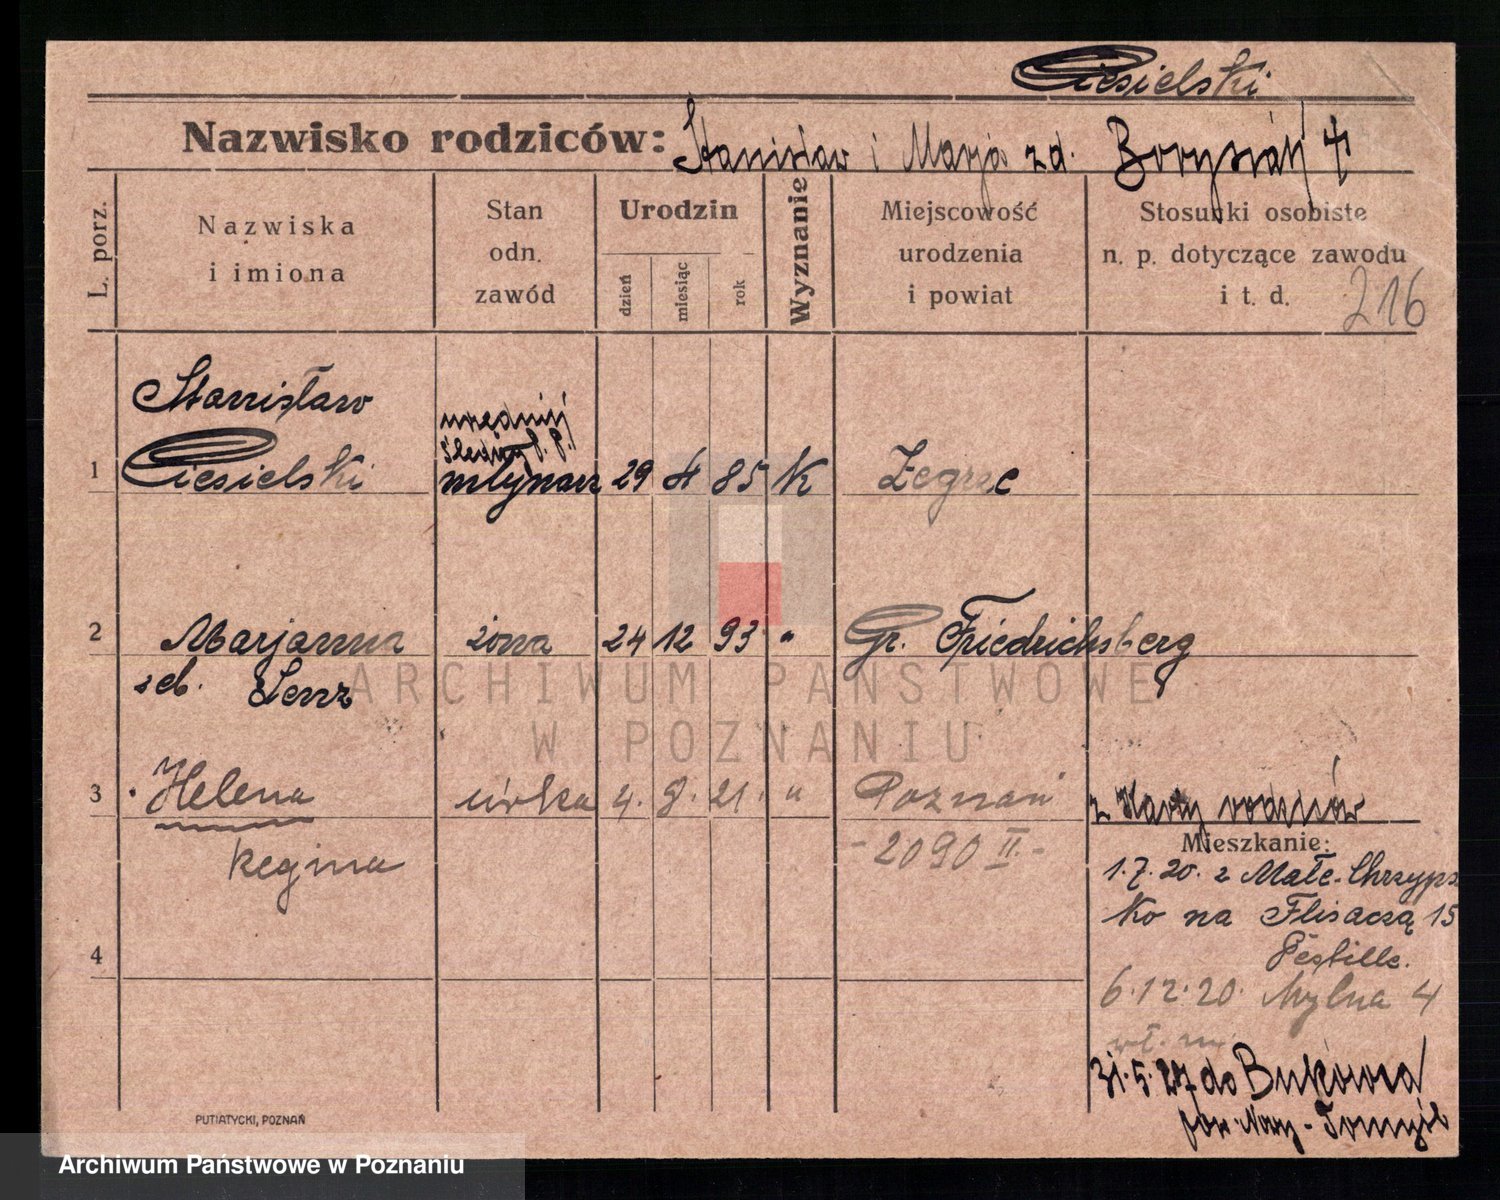 Ciesielski
Nazwisko rodziców: Stanisław i Marja zd.
L. porz.
Nazwiska
i imiona
Stan
odn.
zawód
Urodzin
dzień
miesiąc
rok
Wyznanie
Miejscowość
urodzenia
i powiat
Stosunki osobiste
n. p. dotyczące zawodu
i t. d.
216
Stanisław
1 Ciesielski młynarz 29 4 85 K
2 Marjanna żona 24 12 93 " Gr. Friedrichsberg
Lenz
3 Helena córka 4. 9. 21. " Poznań
Regina - 2090 II. -
z Karty rodziców
Mieszkanie:
1.7.20. z Małe-Chrzyps
ko na Flisaczą 15
6.12.20. Mylna 4
31.5.27 do Bukowca
pow. Nowy-Tomyśl
4
ARCHIWUM PAŃSTWOWE
W POZNANIU
PUTIATYCKI, POZNAŃ
Archiwum Państwowe w Poznaniu